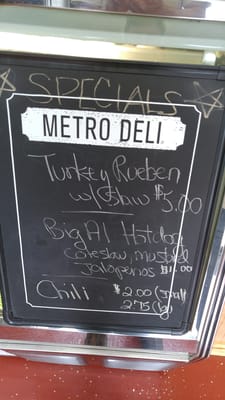 SPECIALS
METRO DELI
Turkey Rueben
w/Cslaw $5.00
Big Al Hotdog
Coleslaw, mustard
Jalapenos $1.00
Chili $2.00 (small)
2.75 (lg)